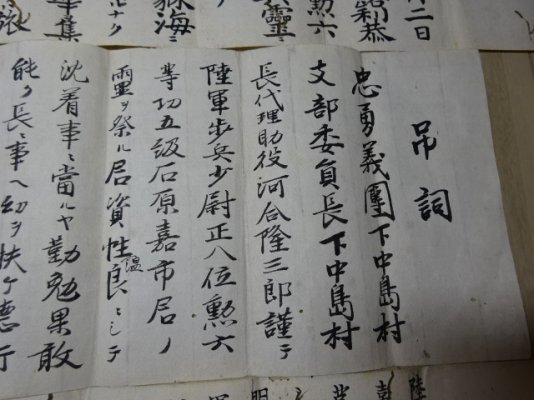 吊詞
忠勇義團下中島村
支部委員長下中島村
長代理助役河合隆三郎謹テ
陸軍歩兵少尉正八位勲六
等功五級石原嘉市君ノ
霊ヲ祭ル君資性温良ニシテ
沈着事ニ當ルヤ勤勉果敢
能ク長ニ事ヘ幼ヲ扶ケ德行